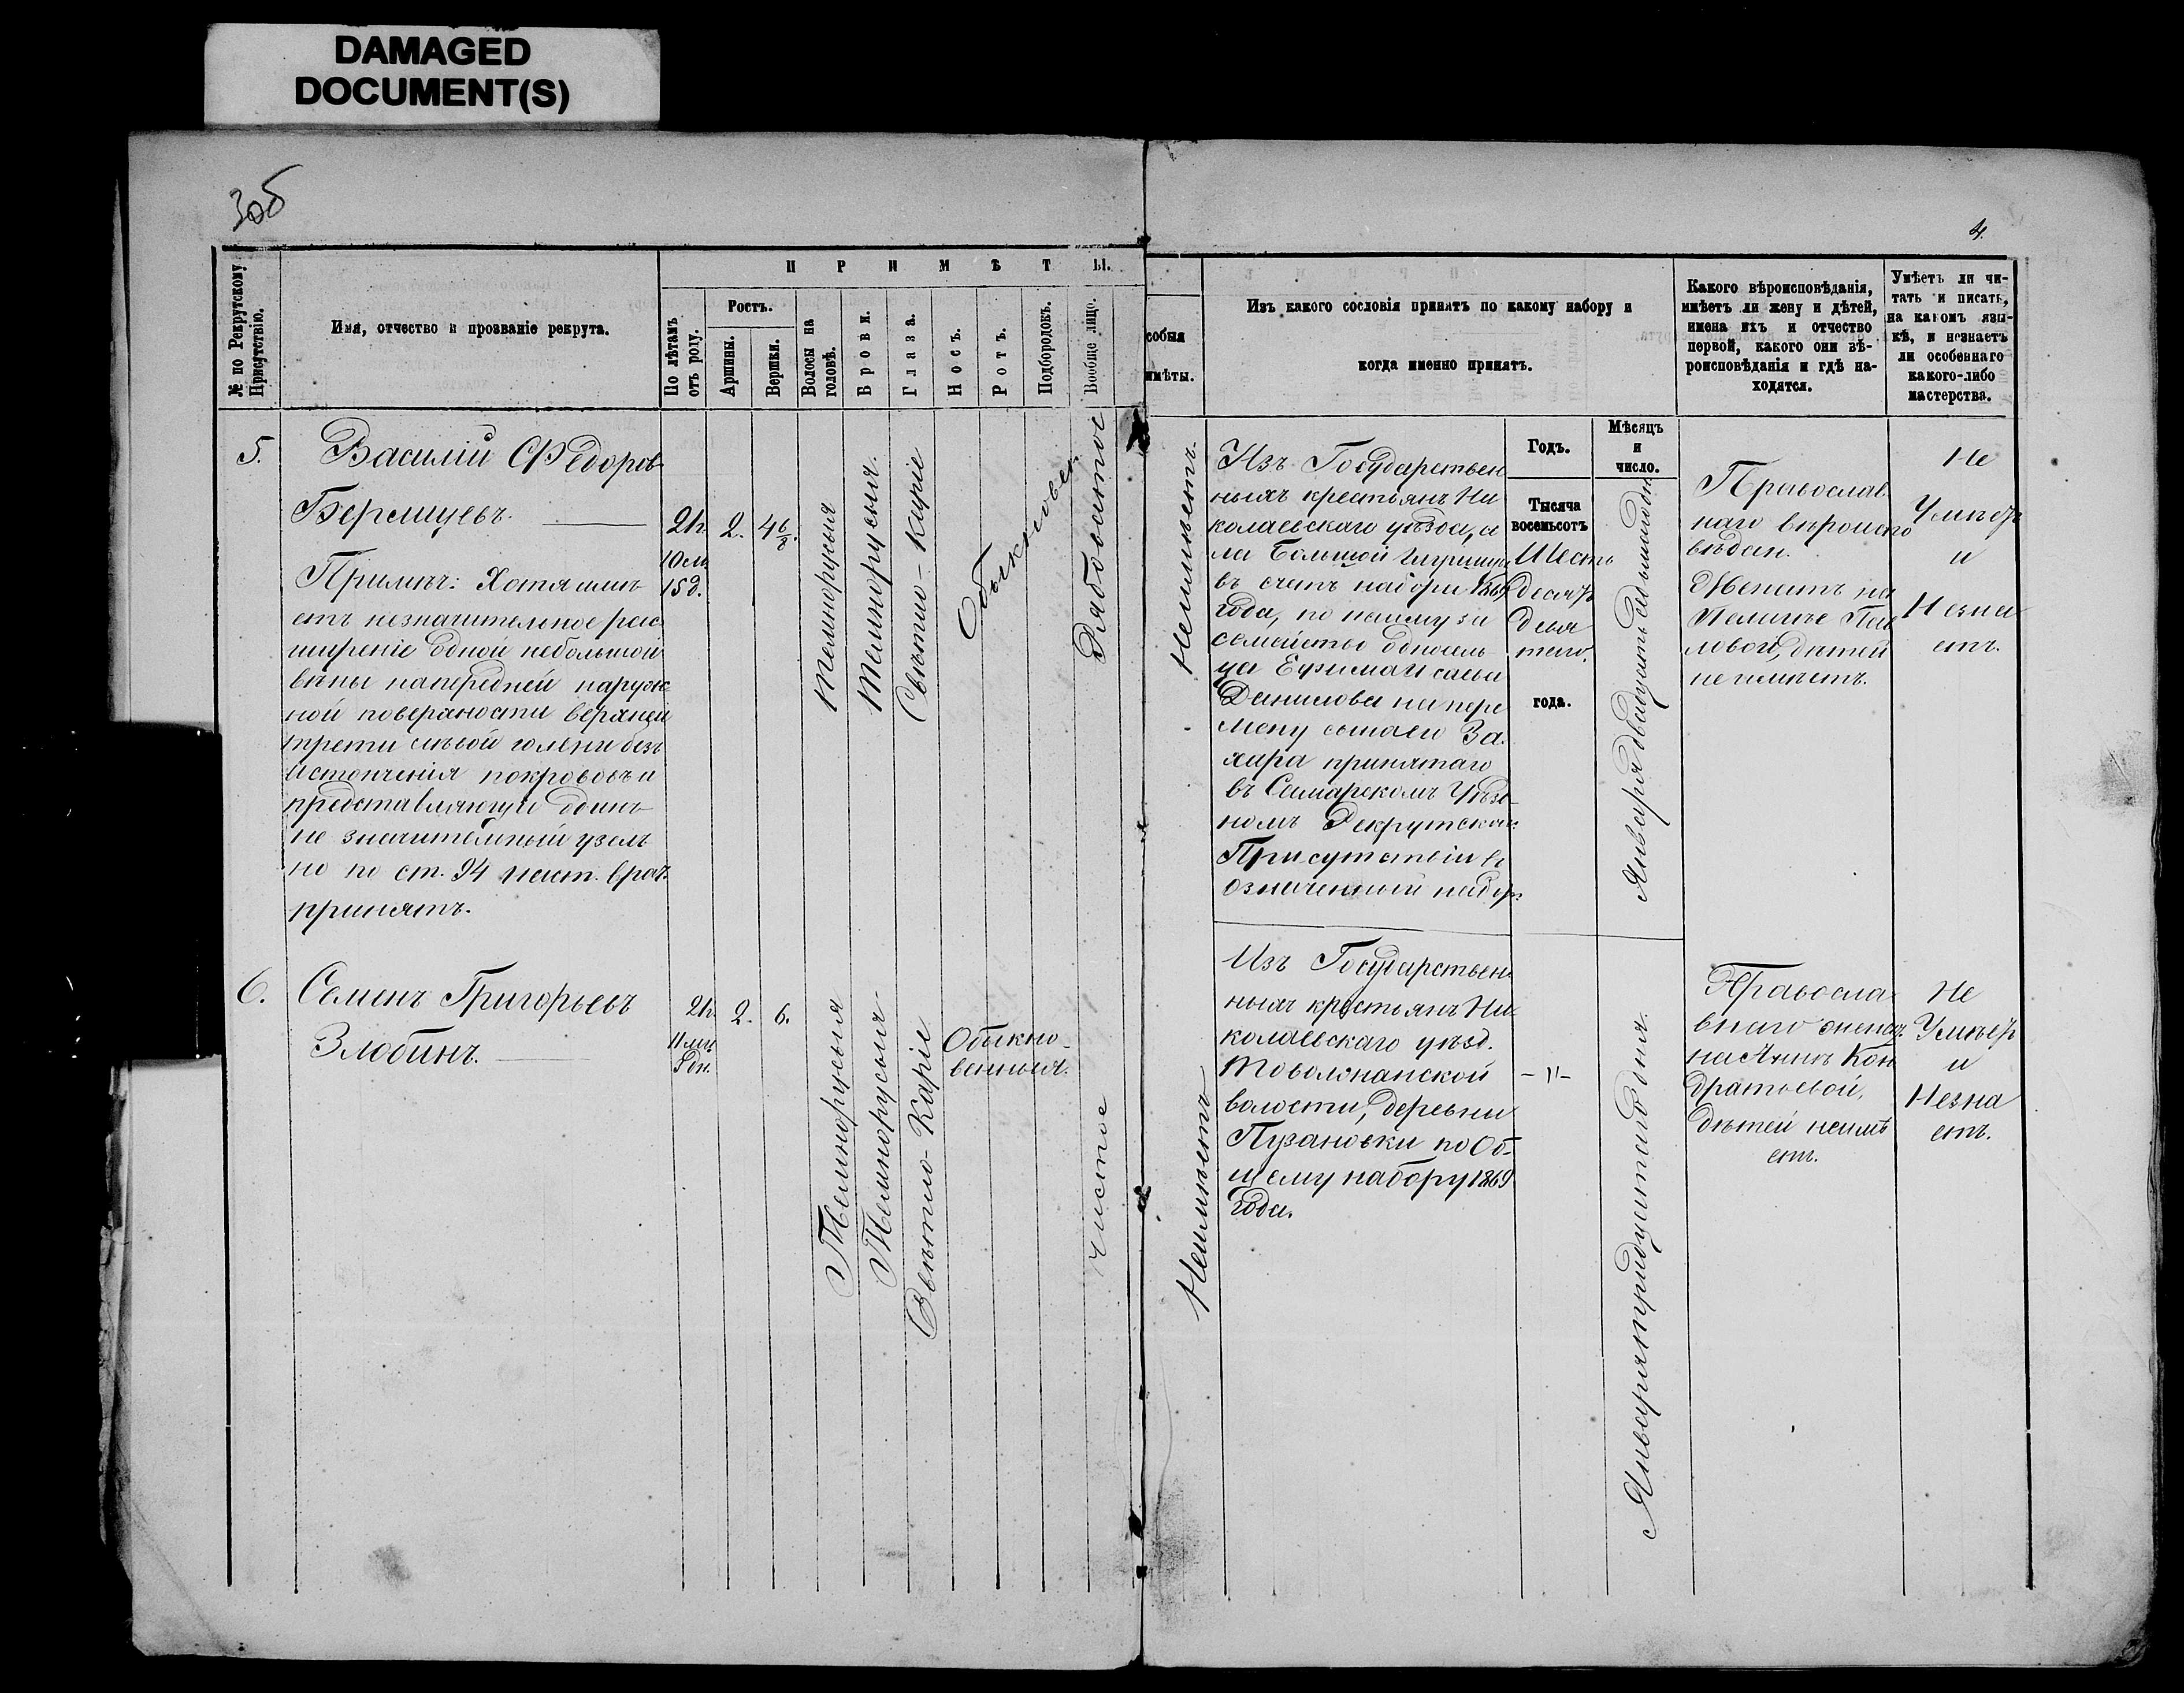 DAMAGED
DOCUMENT(S)
3об
4.
№ по Рекрутскому
Присутствію.
Имя, отчество и прозваніе рекрута.
ПРИМѢТЫ.
По лѣтамъ
отъ роду.
Ростъ.
Аршины.
Вершки.
Волосы на
головѣ.
Брови.
Глаза.
Носъ.
Ротъ.
Подбородокъ.
Вообще лицо.
собыя
имѣты.
Изъ какого сословія принятъ по какому набору и
когда именно принятъ.
Какого вѣроисповѣданія,
имѣетъ ли жену и дѣтей,
имена ихъ и отчество
первой, какого они вѣ-
роисповѣданія и гдѣ на-
ходятся.
Умѣетъ ли чи-
тать и писать,
на какомъ язы-
кѣ, и незнаетъ
ли особеннаго
какого-либо
мастерства.
5.
Василій Федоров
Примѣч: Хотя имѣ
етъ незначительное рас
ширеніе одной небольшой
вѣны напередней наруж
ной поверхности верхней
трети лѣвой голени безъ
истонченія покрововъ и
представляющую одинъ
не значительный узелъ
но по ст. 94 наст. врач.
принятъ.
21г.
10 м.
15 д.
2.
4 6/8.
Темнорусыя
Темнорусыя.
Свѣтло-Карiе
Обыкновен.
Рябоватое
Неимѣетъ.
Изъ Государствен
ныхъ крестьянъ Ни
колаевскаго уѣзда, се
ла Большой Глушицы
въ счетъ набора 1869
года, по найму за
семейство односель
ца Ефима Исаева
Данилова на пере
мену сына его За
хара принятаго
въ Самарскомъ Уѣзд
номъ Рекрутском
Присутствіи в
означенный набор.
Годъ.
Тысяча
восемьсотъ
Шесть
десятъ
девя
таго.
года.
Мѣсяцъ
и
число.
Января двадцать седьмаго дня
Православ
наго вѣроиспо
вѣдан.
Женатъ на
Пелагѣе Пав
ловой, дѣтей
не имѣетъ.
Не
Умѣетъ
и
Незна
етъ.
6.
Семенъ Григорьевъ
Злобинъ.
21г.
11 мц
8 дн.
2.
6.
Темнорусыя
Темнорусыя
Свѣтло-Карiе
Обыкно-
венныя.
чистое
Неимѣетъ
Изъ Государствен
ныхъ крестьянъ Ни
колаевскаго уѣзд.
Таволжанской
волости, деревни
Пузановки по Об-
щему набору 1869
года.
-"-
Января тридцатаго дня.
Правосла
внаго женатъ
на Аннѣ Кон
дратьевой,
дѣтей неимѣ
етъ.
Не
Умѣетъ
и
Незна
етъ.